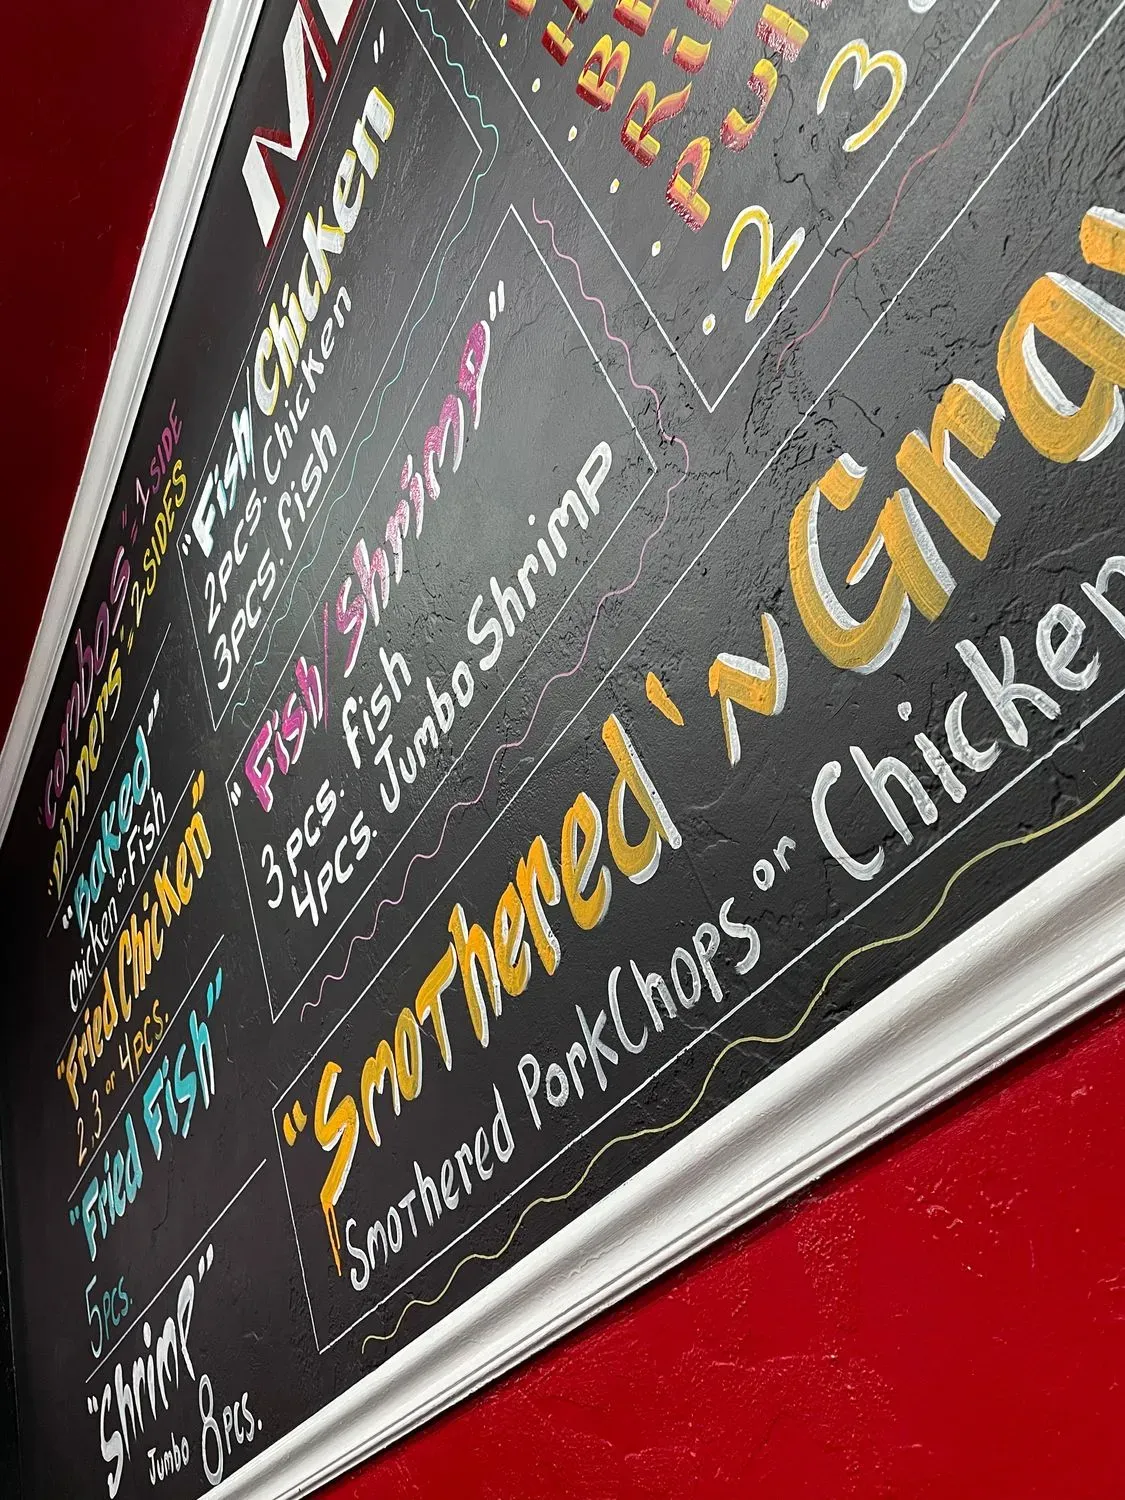 "combos" = 1 SIDE
"Dinners" = 2 SIDES
"Baked"
Chicken or Fish
"Fried Chicken"
2, 3 or 4 PCS.
"Fried Fish"
5 PCS.
"Shrimp"
Jumbo 8 PCS.
"Fish/Chicken"
2 PCS. Chicken
3 PCS. fish
"Fish/Shrimp"
3 PCS. fish
4 PCS. Jumbo Shrimp
"Smothered 'N Gra
Smothered PorkChops or Chicken
2
3